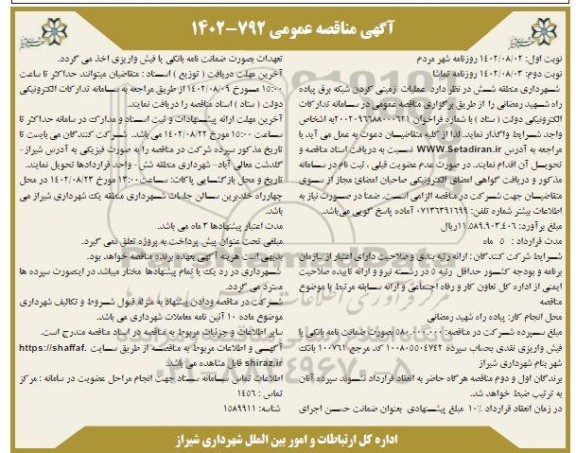 آگهی مناقصه عمومی ۷۹۲-۱۴۰۲
نوبت اول: ۱۴۰۲/۰۸/۰۲ روزنامه شهر مردم
نوبت دوم: ۱۴۰۲/۰۸/۰۳ روزنامه تماشا
شهرداری منطقه شش در نظر دارد عملیات زمینی کردن شبکه برق پیاده
راه شهید رمضانی را از طریق برگزاری مناقصه عمومی در سامانه تدارکات
الکترونیکی دولت (ستاد) با شماره فراخوان ۲۰۰۲۰۹۶۶۸۸۰۰۰۶۲۱ به اشخاص
واجد شرایط واگذار نماید. لذا از کلیه متقاضیان دعوت به عمل می آید با
مراجعه به آدرس WWW.Setadiran.ir نسبت به دریافت اسناد مناقصه و
تحویل آن اقدام نمایند. در صورت عدم عضویت قبلی ، ثبت نام در سامانه
مذکور و دریافت گواهی امضای الکترونیکی صاحبان امضای مجاز از سوی
متقاضیان جهت شرکت در مناقصه الزامی است. ضمناً در صورت نیاز به
اطلاعات بیشتر شماره تلفن: ۰۷۱۳۶۳۹۱۶۹۹ آماده پاسخ گویی می‌باشد.
مبلغ برآورد: ۱۱.۵۸۹.۹۰۳.۴۰۶ ریال
مدت قرارداد : ۵ ماه
شرایط شرکت کنندگان : ارائه رتبه بندی و صلاحیت دارای اعتبار از سازمان
برنامه و بودجه کشور حداقل رتبه ۵ در رشته نیرو و ارائه تاییده صلاحیت
ایمنی از اداره کل تعاون کار و رفاه اجتماعی و ارائه سابقه مرتبط با موضوع
مناقصه
محل انجام کار: پیاده راه شهید رمضانی
مبلغ سپرده شرکت در مناقصه: ۵۸۰.۰۰۰.۰۰۰ بصورت ضمانت نامه بانکی یا
فیش واریزی نقدی بحساب سپرده ۱۰۰۸۰۵۵۰۴۷۴۲ کد مرجع ۱۰۰۷۶۱ بانک
شهر بنام شهرداری شیراز
برندگان اول و دوم مناقصه هرگاه حاضر به انعقاد قرارداد نشوند سپرده آنان
به ترتیب ضبط خواهد شد.
در زمان انعقاد قرارداد ۱۰٪ مبلغ پیشنهادی بعنوان ضمانت حسن اجرای
تعهدات بصورت ضمانت نامه بانکی یا فیش واریزی اخذ می گردد.
آخرین مهلت دریافت ( توزیع ) اسناد : متقاضیان میتوانند حداکثر تا ساعت
۱۵:۰۰ مورخ ۱۴۰۲/۰۸/۰۹ از طریق مراجعه به سامانه تدارکات الکترونیکی
دولت ( ستاد ) اسناد مناقصه را دریافت نمایند.
آخرین مهلت ارائه پیشنهادات و ثبت اسناد و مدارک در سامانه حداکثر تا
ساعت ۱۵:۰۰ مورخ ۱۴۰۲/۰۸/۲۲ می باشد. شرکت کنندگان می بایست تا
تاریخ مذکور سپرده شرکت در مناقصه را به صورت فیزیکی به آدرس شیراز –
گلدشت معالی آباد- شهرداری منطقه شش- واحد قراردادها تحویل نمایند.
تاریخ و محل بازگشایی پاکات: ساعت ۱۳:۰۰ مورخ ۱۴۰۲/۰۸/۲۳ در محل
چهارراه خلدبرین سالن جلسات شهرداری منطقه یک شهرداری شیراز می
باشد.
مدت اعتبار پیشنهادها ۳ ماه می باشد.
مبلغی تحت عنوان پیش پرداخت به پروژه تعلق نمی گیرد.
بدیهی است هزینه آگهی بعهده برنده مناقصه خواهد بود.
شهرداری در رد یک یا تمام پیشنهادها مختار میباشد در اینصورت سپرده ها
مسترد می گردد.
شرکت در مناقصه و دادن پیشنهاد به منزله قبول شروط و تکالیف شهرداری
موضوع ماده ۱۰ آئین نامه معاملات شهرداری می باشد.
سایر اطلاعات و جزئیات مربوط به مناقصه در اسناد مناقصه مندرج است.
آگهی و اطلاعات مربوط به مناقصه از طریق سایت https://shaffaf.
shiraz.ir قابل مشاهده می باشد.
اطلاعات تماس سامانه ستاد جهت انجام مراحل عضویت در سامانه : مرکز
تماس : ۱۴۵۶
شناسه: ۱۵۸۹۹۱۱
اداره کل ارتباطات و امور بین الملل شهرداری شیراز